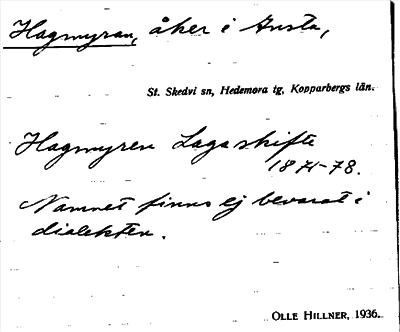 Hagmyran, åker i Ansta,
St. Skedvi sn, Hedemora tg, Kopparbergs län.
Hagmyren Laga skifte
1871-78.
Namnet finns ej bevarat i
dialekten.
OLLE HILLNER, 1936.